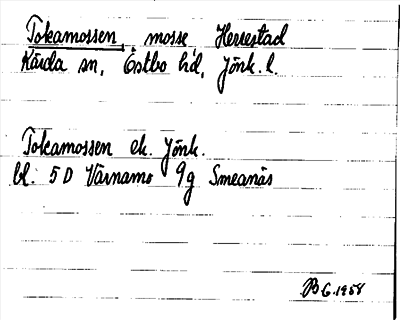 Tokamossen, mosse, Herrestad
Kärda sn, Östbo hd, Jönk. l.
Tokamossen ek. Jönk.
bl. 5 D Värnamo 9g Smeanäs
BG. 1958